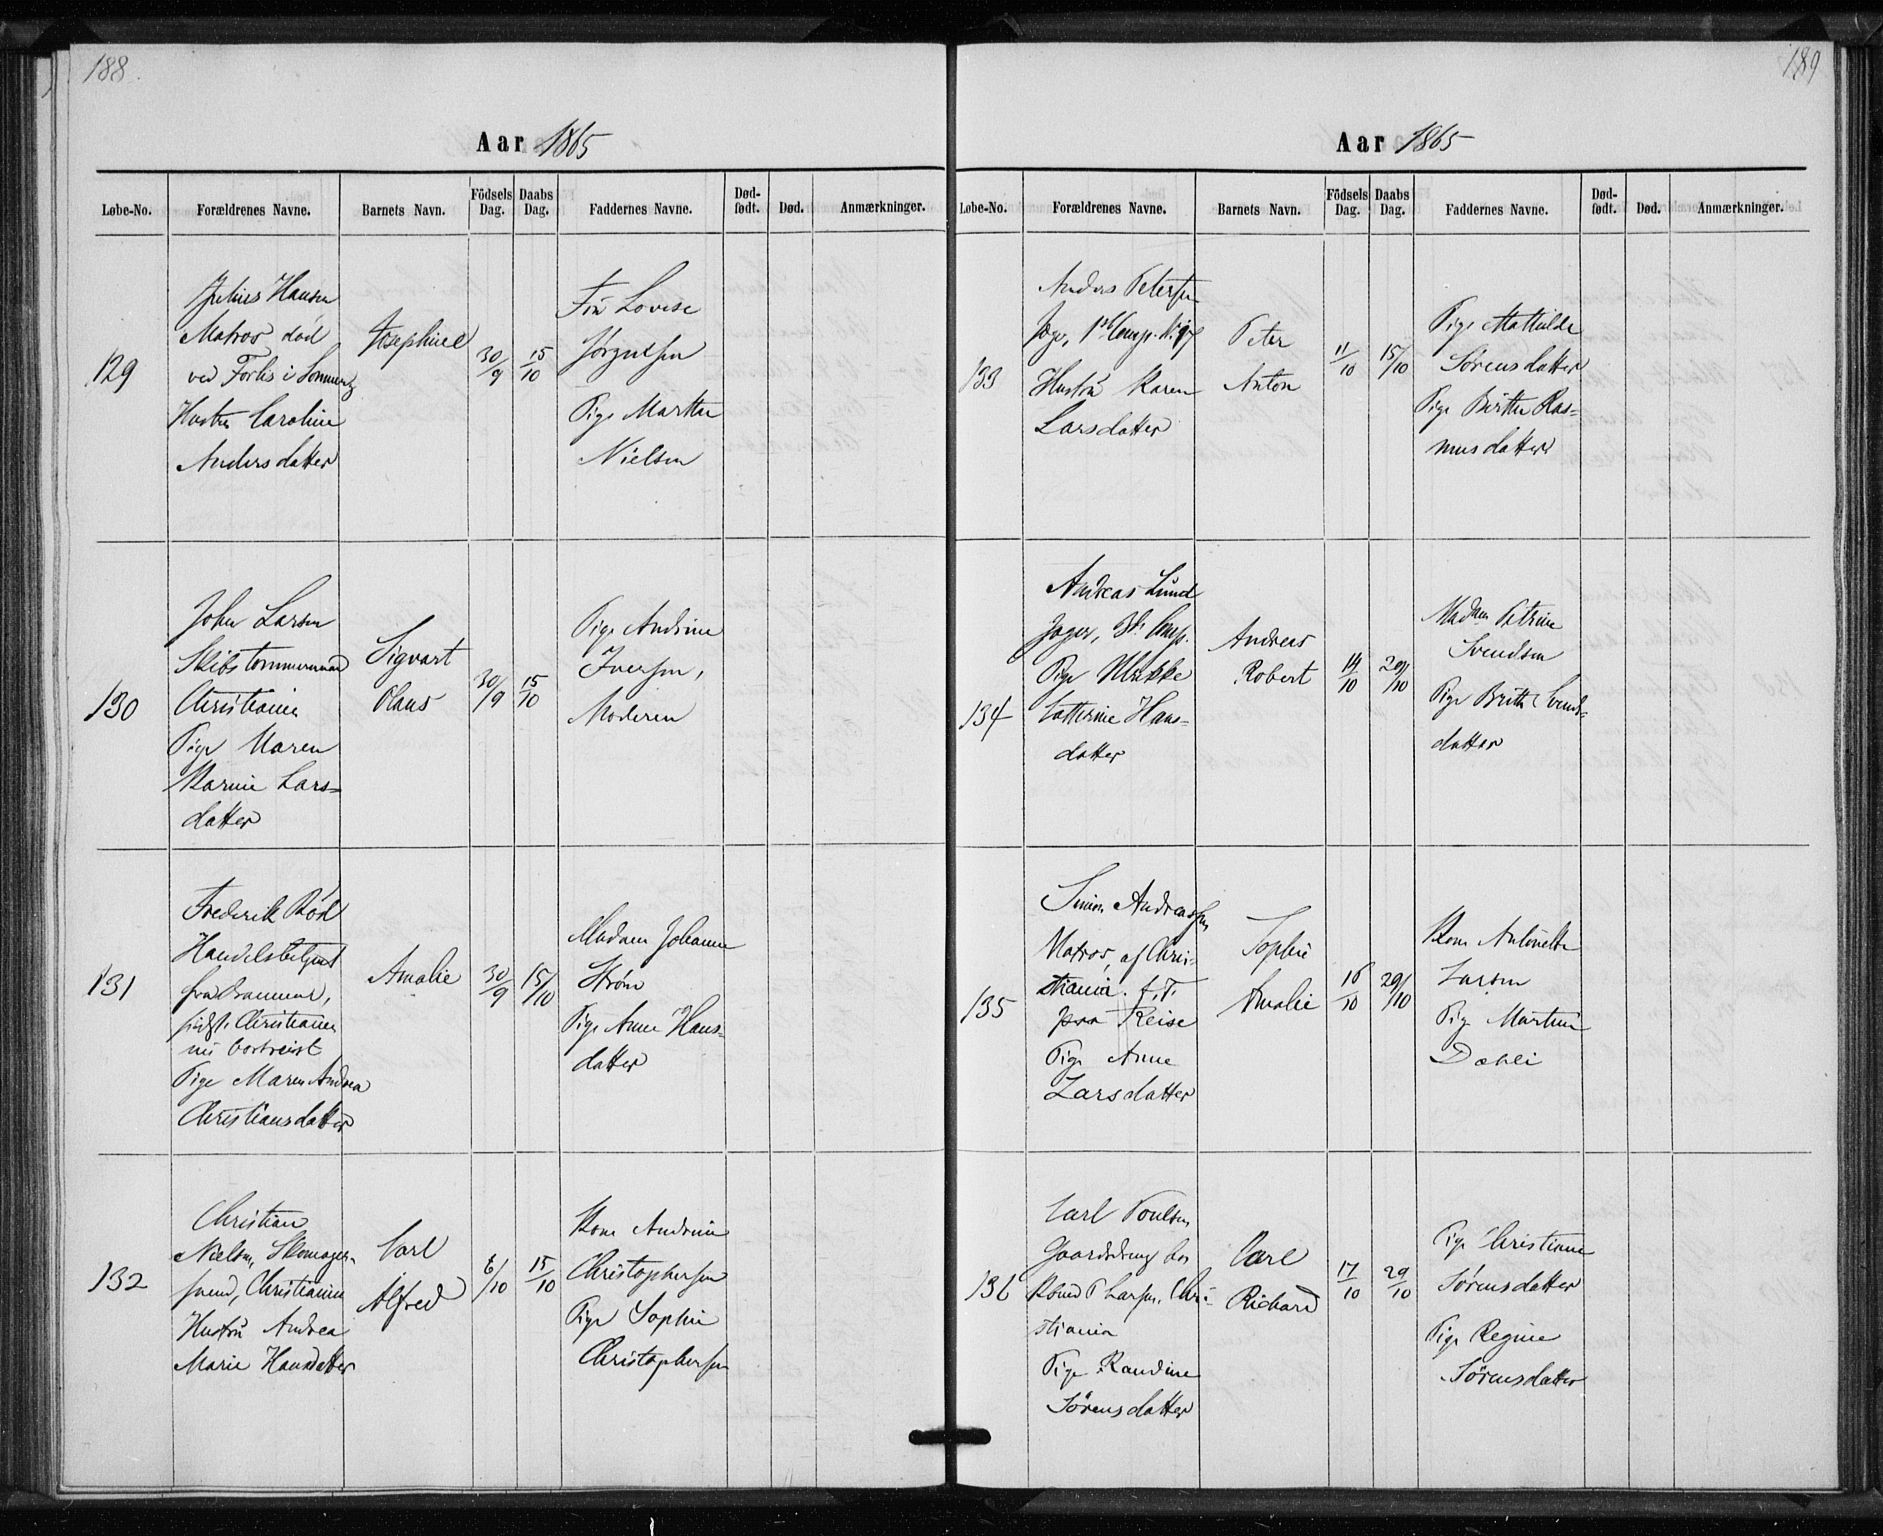 188.
Aar 1865
Løbe-No. Forældrenes Navne. Barnets Navn. Födsels Dag. Daabs Dag. Faddernes Navne. Død-født. Død. Anmærkninger.
129
Julius Hansen
Matros död
ved Forlis i
Hustru Caroline
Andersdatter
Josephine
30/9
15/10
Frü Lovise
Jörgensen
Pige Marthe
Nielsen
130
John Larsen
Skibstømmermand
Christiania
Pige Maren
Karine Lars=
datter
Sigvart
Olaus
30/9
15/10
Pige Andrine
Iversen,
Moderen
131
Frederik
Handelsbetjent
fra
sidst. Christiania
nu bortreist
Pige Maren Andrea
Christiansdatter
Amalie
30/9
15/10
Madam Johanne
Strøm
Pige Anne Hans-
datter
132
Christian
Nielsen, Skomager-
svend, Christiania
Hustrü Andrea
Marie Hansdatter
Carl
Alfred
6/10
15/10
Kone Andrine
Christophersen
Pige Sophie
Christophersen
189
Aar 1865
Løbe-No. Forældrenes Navne. Barnets Navn. Födsels Dag. Daabs Dag. Faddernes Navne. Død-født. Død. Anmærkninger.
133
Anders Petersen
Jæger, 1ste Comp.
Hustrü Karen
Larsdatter
Peter
Anton
11/10
15/10
Pige Mathilde
Sørensdatter
Pige Birthe Ras=
musdatter
134
Andreas Lund
Jæger, 3die Comp.
Pige
Cathrine Hans=
datter
Andreas
Robert
14/10
29/10
Madam Petrine
Svendsen
Pige Birthe Svends=
datter
135
Simon Andreassen
Matros, af Chri-
stiania. f. T.
paa Reise
Pige Anne
Larsdatter
Sophie
Amalie
16/10
29/10
Kone Antonette
Larsen
Pige Martine
Dæhli
136
Carl Poulsen
Gaardsdreng hos
Larsen, Chri-
stiania
Pige Randine
Sörensdatter
Carl
Richard
17/10
29/10
Pige Christiane
Sörensdatter
Pige Regine
Sörensdatter